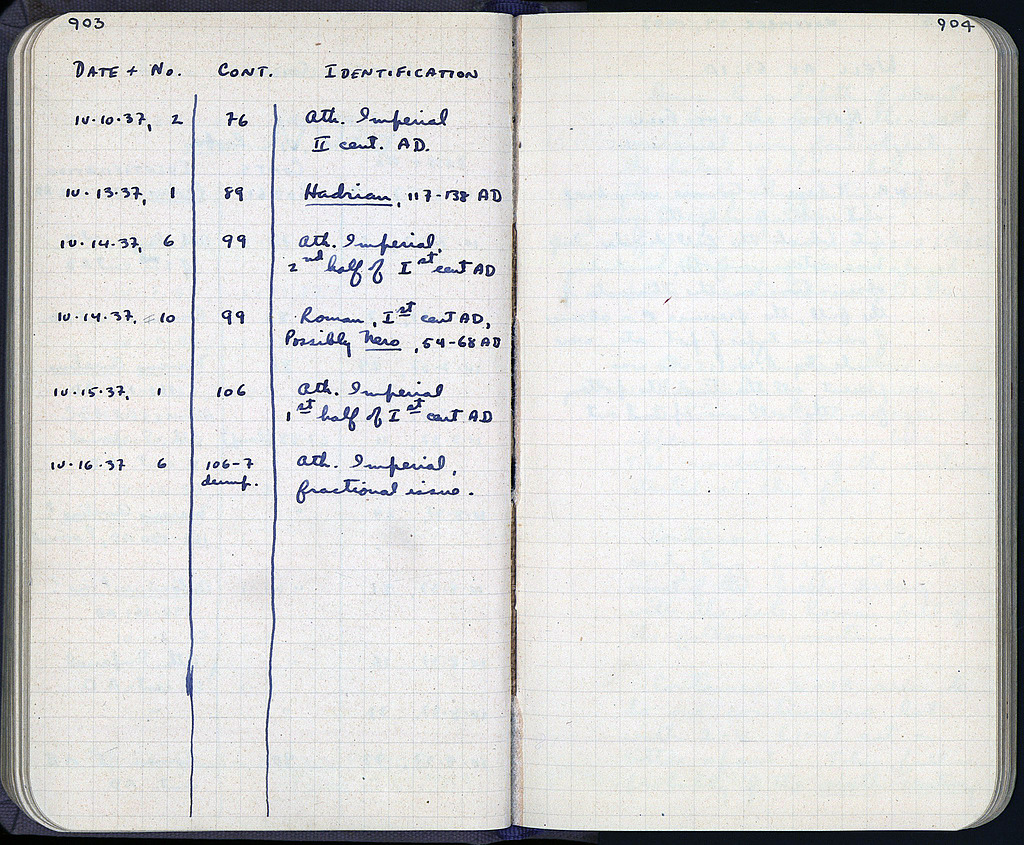 903
904
DATE + No. CONT. IDENTIFICATION
IV·10·37, 2 76 Ath. Imperial
II cent. AD.
IV·13·37, 1 89 Hadrian, 117-138 AD
IV·14·37, 6 99 Ath. Imperial,
2nd half of Ist cent AD
IV·14·37, 10 99 Roman, Ist cent AD,
Possibly Nero, 54-68 AD
IV·15·37, 1 106 Ath. Imperial
1st half of Ist cent AD
IV·16·37 6 106-7 Ath. Imperial,
dump. fractional issue.